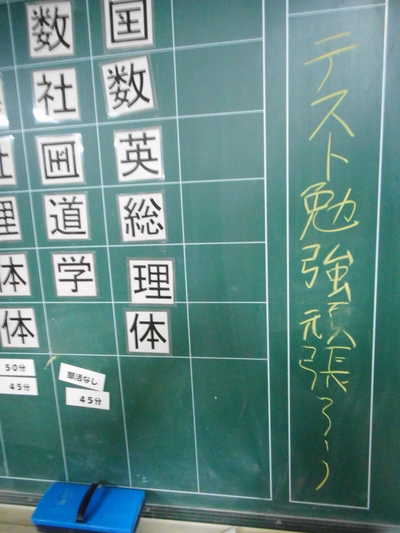 テスト勉強頑張ろう
国
数
英
総
理
体
数
社
国
道
学
部活なし
45分
理
体
体
50分
45分